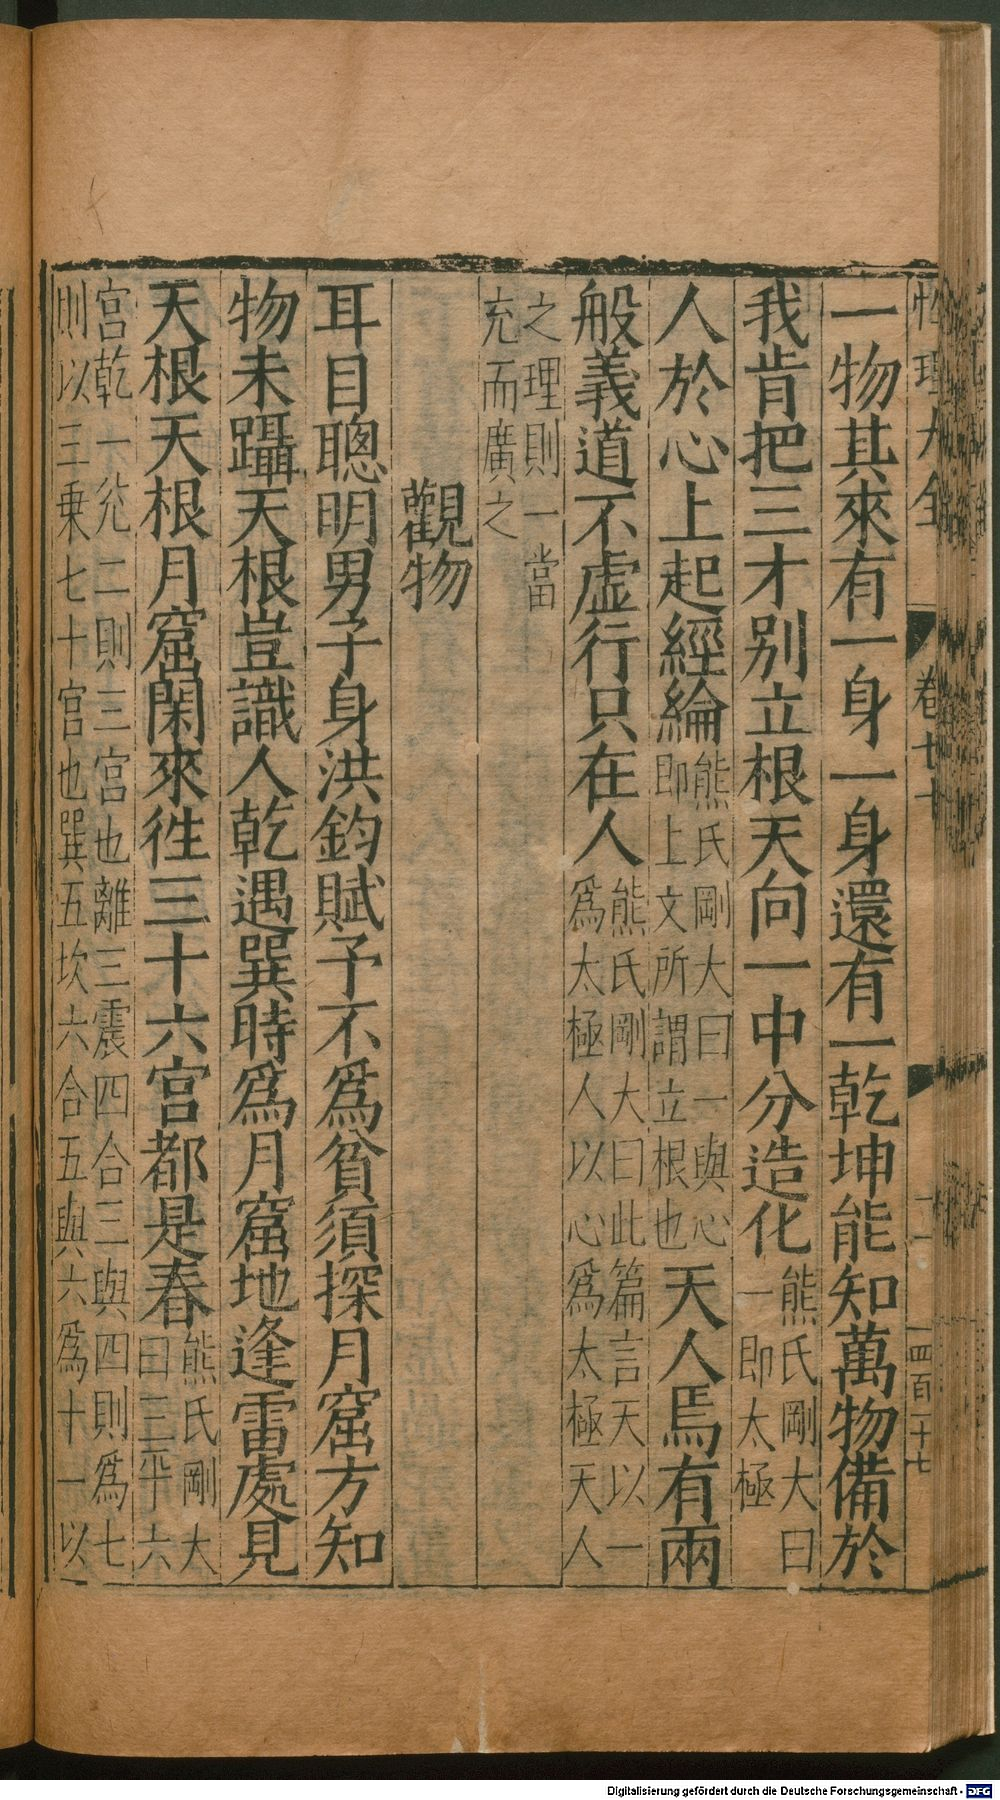 性理大全　卷七十
一物其來有一身一身還有一乾坤能知萬物備於
我肯把三才別立根天向一中分造化
熊氏剛大曰
一即太極
人於心上起經綸
熊氏剛大曰一與心
即上文所謂立根也
天人焉有兩
般義道不虛行只在人
熊氏剛大曰此篇言天以一
爲太極人以心爲太極天人
之理則一當
充而廣之
觀物
耳目聰明男子身洪鈞賦予不爲貧須探月窟方知
物未躡天根豈識人乾遇巽時爲月窟地逢雷處見
天根天根月窟閑來徃三十六宮都是春
熊氏剛大
曰三平六
宮乾一兊二則三宮也離三震四合三與四則爲七
則以三乗七十宮也巽五坎六合五與六爲十一以
四百十七
Digitalisierung gefördert durch die Deutsche Forschungsgemeinschaft - DFG